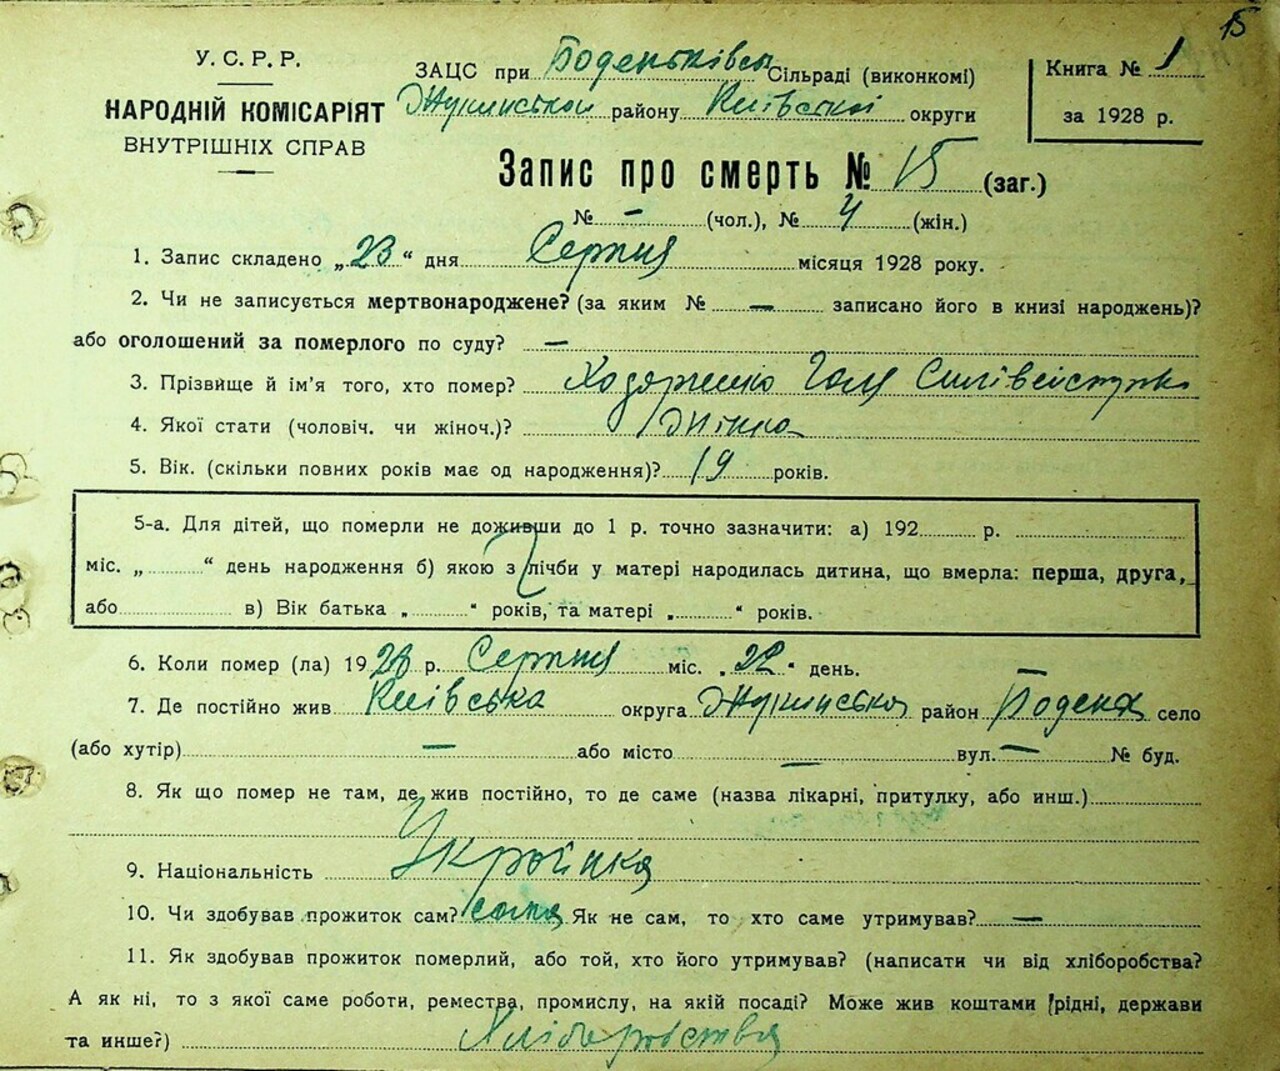 15
У. С. Р. Р.
НАРОДНІЙ КОМІСАРІЯТ
ВНУТРІШНІХ СПРАВ
ЗАЦС при Боденьківськ Сільраді (виконкомі)
району Київської округи
Книга № 1
за 1928 р.
Запис про смерть № 15 (заг.)
№ — (чол.), № 4 (жін.)
1. Запис складено „23“ дня Серпня місяця 1928 року.
2. Чи не записується мертвонароджене? (за яким № — записано його в книзі народжень)?
або оголошений за померлого по суду? —
3. Прізвище й ім'я того, хто помер? Галя
4. Якої стати (чоловіч. чи жіноч.)? Жінка
5. Вік. (скільки повних років має од народження)? 19 років.
5-а. Для дітей, що померли не доживши до 1 р. точно зазначити: а) 192 р.
міс. „ “ день народження б) якою з лічби у матері народилась дитина, що вмерла: перша, друга,
або в) Вік батька „ “ років, та матері „ “ років.
6. Коли помер (ла) 1928 р. Серпня міс. „22“ день.
7. Де постійно жив Київська округа район село
(або хутір) — або місто — вул. — № буд.
8. Як що помер не там, де жив постійно, то де саме (назва лікарні, притулку, або инш.)
9. Національність Українка
10. Чи здобував прожиток сам? сама Як не сам, то хто саме утримував? —
11. Як здобував прожиток померлий, або той, хто його утримував? (написати чи від хліборобства?
А як ні, то з якої саме роботи, ремества, промислу, на якій посаді? Може жив коштами рідні, держави
та инше?) Хліборобства